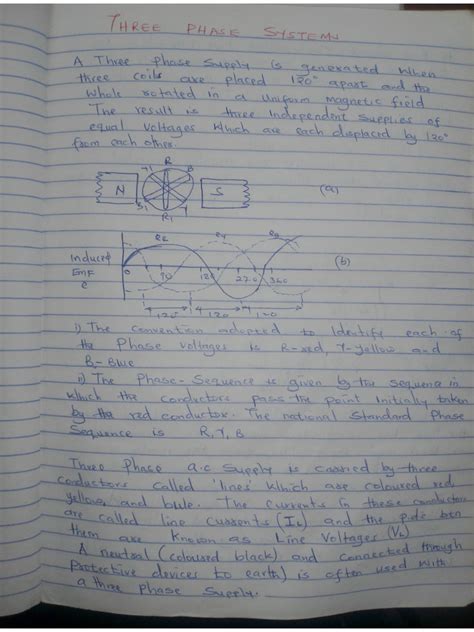 THREE PHASE SYSTEMS
A Three phase Supply is generated when
three coils are placed 120° apart and the
whole rotated in a uniform magnetic field
The result is three Independent supplies of
equal voltages which are each displaced by 120°
from each other.
R
Y1 B
N S (a)
B1 Y
R1
eR eY eB
Induced
Emf
e
0 90 180 270 360
(b)
120 120 120
i) The convention adopted to Identify each of
the Phase voltages is R-red, Y-yellow and
B-Blue
ii) The Phase-Sequence is given by the sequence in
which the conductors pass the point initially taken
by the red conductor. The national Standard Phase
Sequence is R, Y, B
Three Phase a.c Supply is carried by three
conductors called 'lines' which are coloured red
yellow, and blue. The currents in these conductors
are called line currents (IL) and the p.ds btn
them are known as Line Voltages (VL)
A neutral (coloured black) and connected through
Protective devices to earth) is often used with
a three phase Supply.